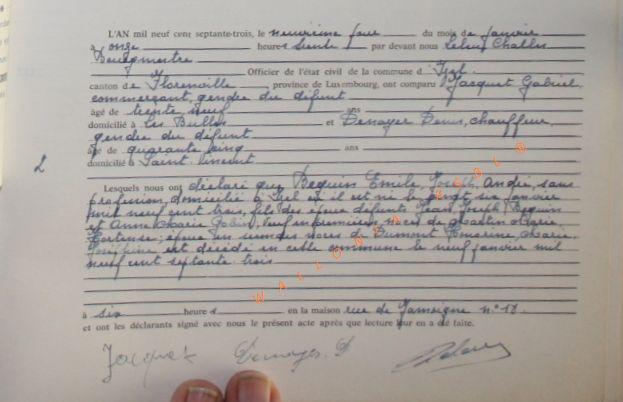 L'AN mil neuf cent septante-trois, le neuvième jour du mois de janvier
à onze heures trente par devant nous Leleux Charles
Bourgmestre
Officier de l'état civil de la commune d'Izel
canton de Florenville province de Luxembourg, ont comparu Jacquet Gabriel,
commerçant, gendre du défunt
âgé de trente neuf ans
domicilié à Les Bulles et Denayer Denis, chauffeur,
gendre du défunt
âgé de quarante cinq ans
2
domicilié à Saint Vincent
Lesquels nous ont déclaré que Bequin Emile, Joseph, André, sans
profession, domicilié à Izel où il est né le vingt six janvier
mil neuf cent trois, fils des époux défunts Jean Joseph Bequin
et Anne Marie Gobin, veuf en premières noces de Martin Marie
Hortense; époux en secondes noces de Dumont Marie
Joséphine est décédé en cette commune le neuf janvier mil
neuf cent septante trois
WALLONIA ®
à six heures en la maison rue de Jamoigne n° 18.
et ont les déclarants signé avec nous le présent acte après que lecture leur en a été faite.
Jacquet Denayer. D